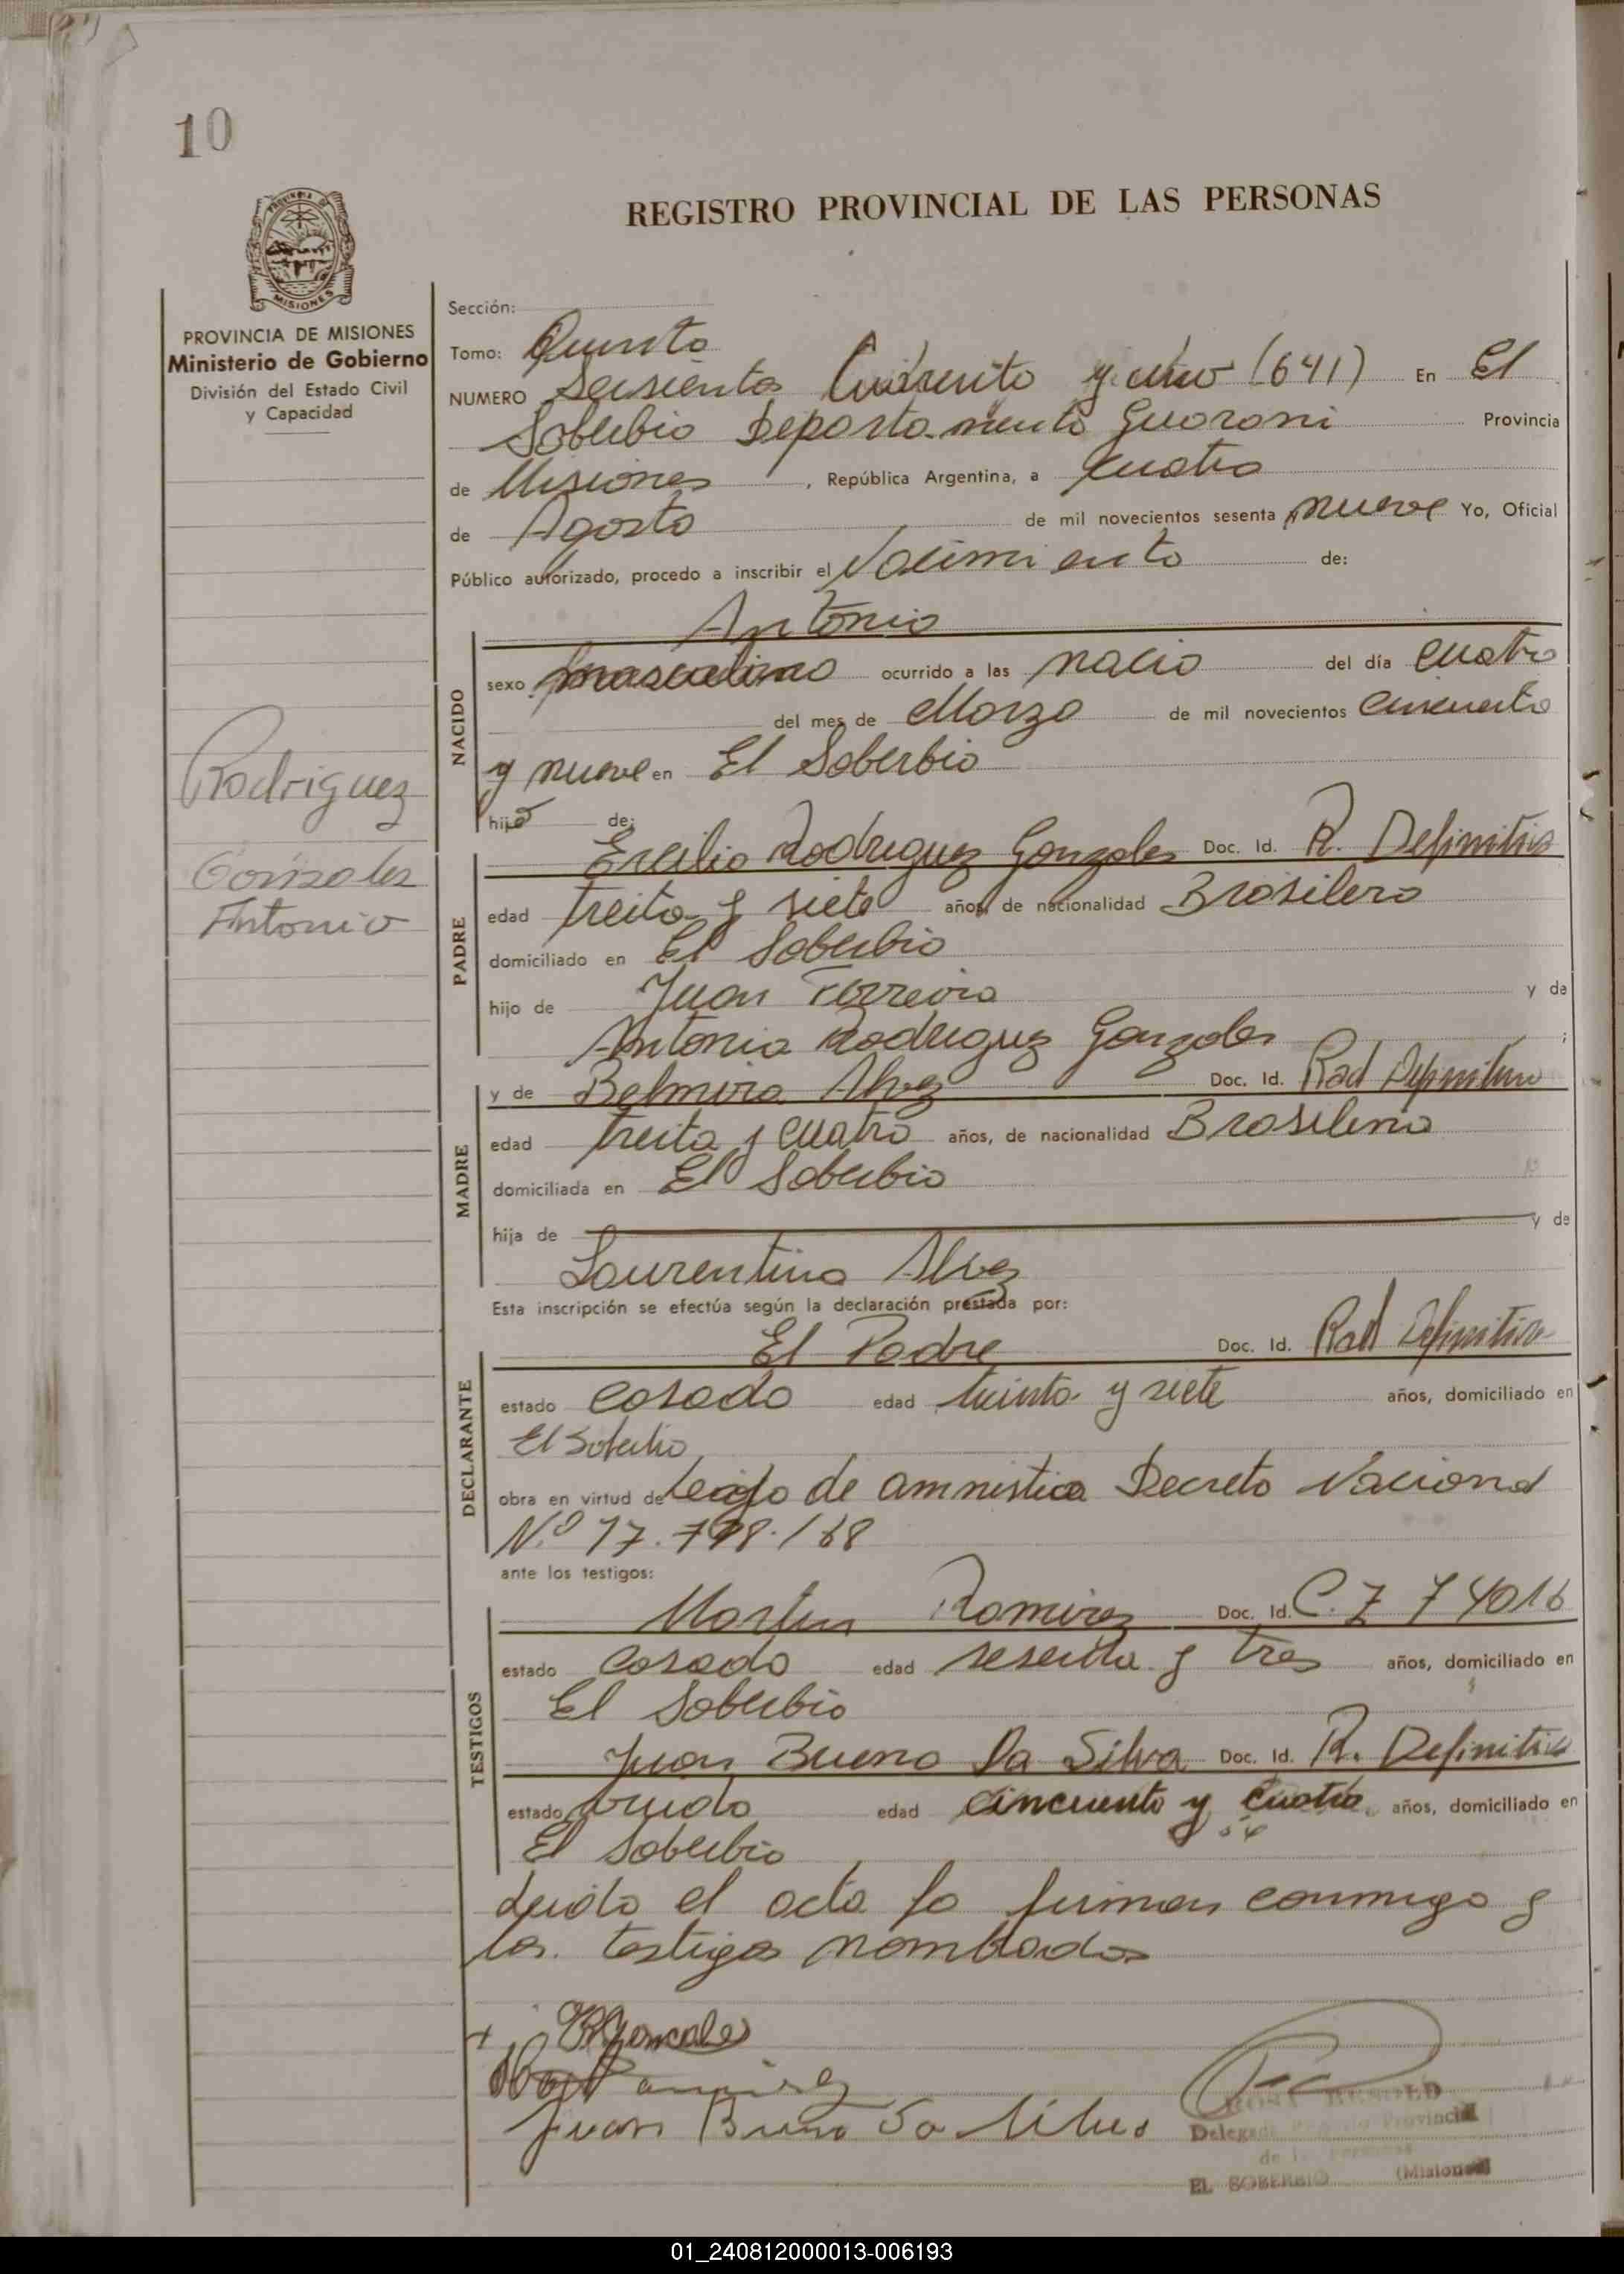 10
REGISTRO PROVINCIAL DE LAS PERSONAS
MISIONES
PROVINCIA DE MISIONES
Ministerio de Gobierno
División del Estado Civil
y Capacidad
Rodriguez
Gonzales
Antonio
Sección:
Tomo: Quinto
NUMERO Seisientos Cuarenta y uno (641) En El
Soberbio Departamento Guarani Provincia
de Misiones, República Argentina, a cuatro
de Agosto de mil novecientos sesenta nueve Yo, Oficial
Público autorizado, procedo a inscribir el Nacimiento de:
Antonio
NACIDO
sexo masculino ocurrido a las nacio del día cuatro
del mes de Marzo de mil novecientos cincuenta
y nueve en El Soberbio
hijo de:
PADRE
Ercilio Rodriguez Gonzales Doc. Id. R. Definitiva
edad treita y siete años, de nacionalidad Brasilero
domiciliado en El Soberbio
hijo de Juan Ferreira y de
Antonia Rodriguez Gonzales ;
MADRE
y de Belmira Alvez Doc. Id. Rad Definitiva
edad treita y cuatro años, de nacionalidad Brasilena
domiciliada en El Soberbio
hija de y de
Laurentina Alvez
Esta inscripción se efectúa según la declaración prestada por:
DECLARANTE
El Padre Doc. Id. Rad Definitiva
estado casado edad treinta y siete años, domiciliado en
El Soberbio
obra en virtud de de amnistica Decreto Nacional
Nº 17.798/68
ante los testigos:
TESTIGOS
Martin Ramirez Doc. Id. C. I 74016
estado casado edad sesenta y tres años, domiciliado en
El Soberbio
Juan Bueno Da Silva Doc. Id. R. Definitiva
estado viudo edad cincuenta y cuatro años, domiciliado en
El Soberbio
Leida el acta lo firman conmigo y
los testigos nombrados
Goncales
Ramirez
Juan Bueno Da Silva
Delegado Provincial
de las Personas
EL SOBERBIO (Misiones)
01_240812000013-006193